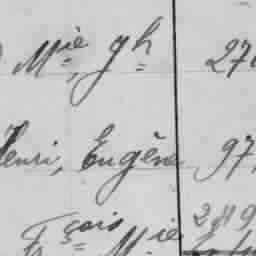 Mie, gh 27
Henri, Eugène 97,
Fçois Mie 289